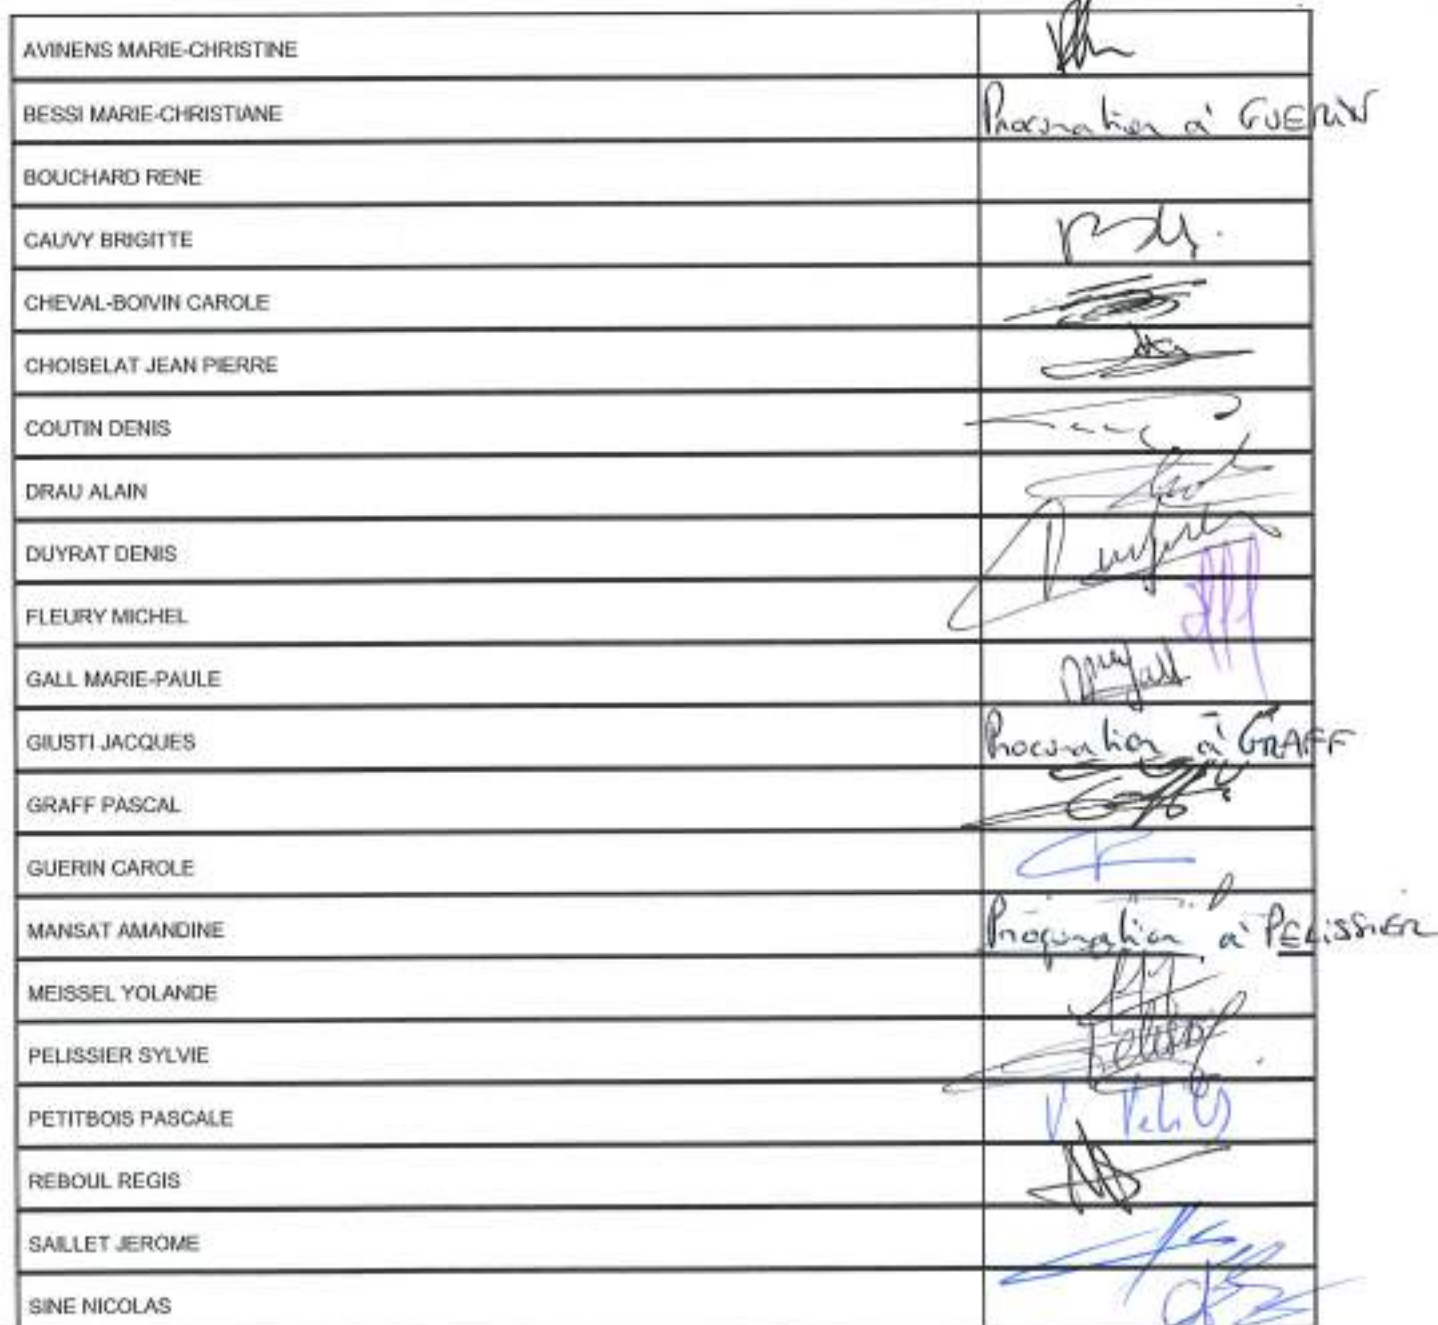 AVINENS MARIE-CHRISTINE
BESSI MARIE-CHRISTIANE Procuration à GUERIN
BOUCHARD RENE
CAUVY BRIGITTE
CHEVAL-BOIVIN CAROLE
CHOISELAT JEAN PIERRE
COUTIN DENIS
DRAU ALAIN
DUYRAT DENIS
FLEURY MICHEL
GALL MARIE-PAULE
GIUSTI JACQUES Procuration à GRAFF
GRAFF PASCAL
GUERIN CAROLE
MANSAT AMANDINE Procuration à PELISSIER
MEISSEL YOLANDE
PELISSIER SYLVIE
PETITBOIS PASCALE
REBOUL REGIS
SAILLET JEROME
SINE NICOLAS